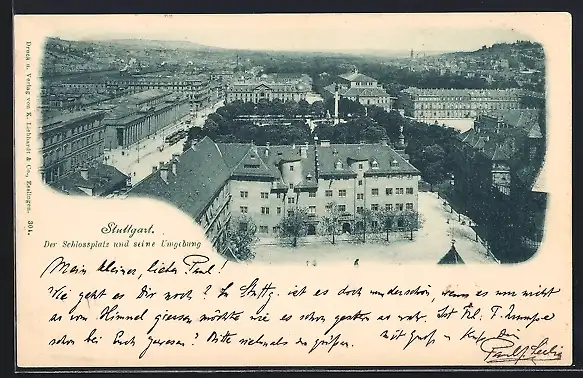 Druck u. Verlag von K. Liebhardt & Co., Esslingen. 304.
Stuttgart.
Der Schlossplatz und seine Umgebung
Mein kleiner, lieber Paul!
Wie geht es Dir noch? In Stuttg. ist es doch wunderschön, wenn es nur nicht
so vom Himmel giessen möchte wie es schon gestern so war. Ist Frl. T.
schon bei Euch gewesen? Bitte vielmals zu grüßen. Mit Gruß u. Kuß Dein
Paul